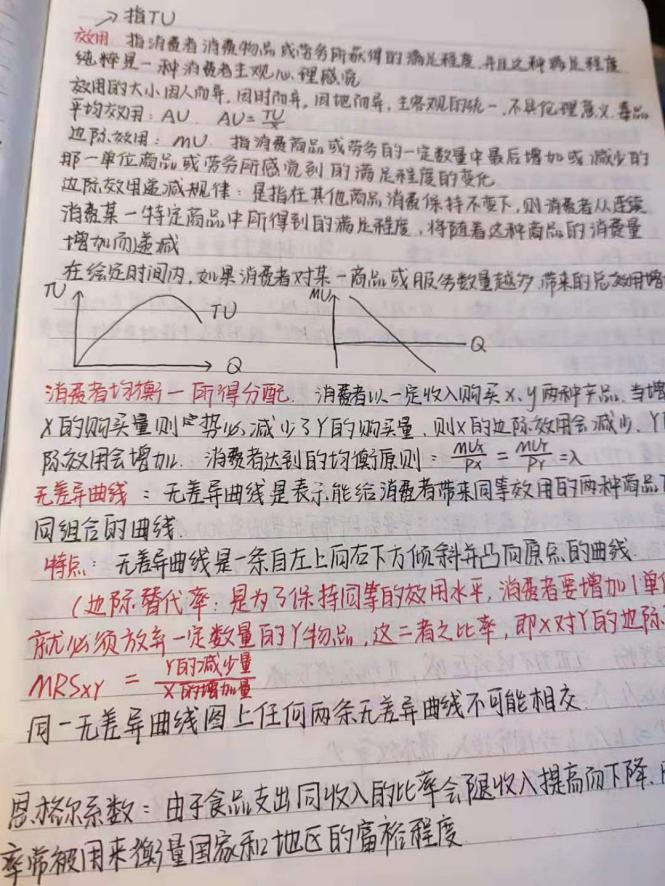 →指TU
效用 指消费者消费物品或劳务所获得的满足程度,并且这种满足程度
纯粹是一种消费者主观心理感觉
效用的大小因人而异,因时而异,因地而异,主客观的统一,不具伦理意义,毒品
平均效用:AU. AU=TU/X
边际效用:MU. 指消费商品或劳务的一定数量中最后增加或减少的
那一单位商品或劳务所感觉到的满足程度的变化
边际效用递减规律:是指在其他商品消费保持不变下,则消费者从连续
消费某一特定商品中所得到的满足程度,将随着这种商品的消费量
增加而递减
在给定时间内,如果消费者对某一商品或服务数量越多,带来的总效用增
TU TU Q
MU Q
消费者均衡—所得分配. 消费者以一定收入购买X,y两种产品.当增
X的购买量则势必减少了Y的购买量,则X的边际效用会减少,Y
际效用会增加. 消费者达到的均衡原则:MUx/Px=MUY/PY=λ
无差异曲线:无差异曲线是表示能给消费者带来同等效用的两种商品
同组合的曲线.
特点:无差异曲线是一条自左上向右下方倾斜并凸向原点的曲线.
(边际替代率:是为了保持同等的效用水平,消费者要增加1单
就必须放弃一定数量的Y物品,这二者之比率,即X对Y的边际
MRSXY = Y的减少量/X的增加量
同一无差异曲线图上任何两条无差异曲线不可能相交.
恩格尔系数:由于食品支出同收入的比率会随收入提高而下降,
率常被用来衡量国家和地区的富裕程度